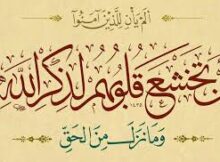 أَلَمْ يَأْنِ لِلَّذِينَ آمَنُوا
أَن تَخْشَعَ قُلُوبُهُمْ لِذِكْرِ اللَّهِ
وَمَا نَزَلَ مِنَ الْحَقِّ